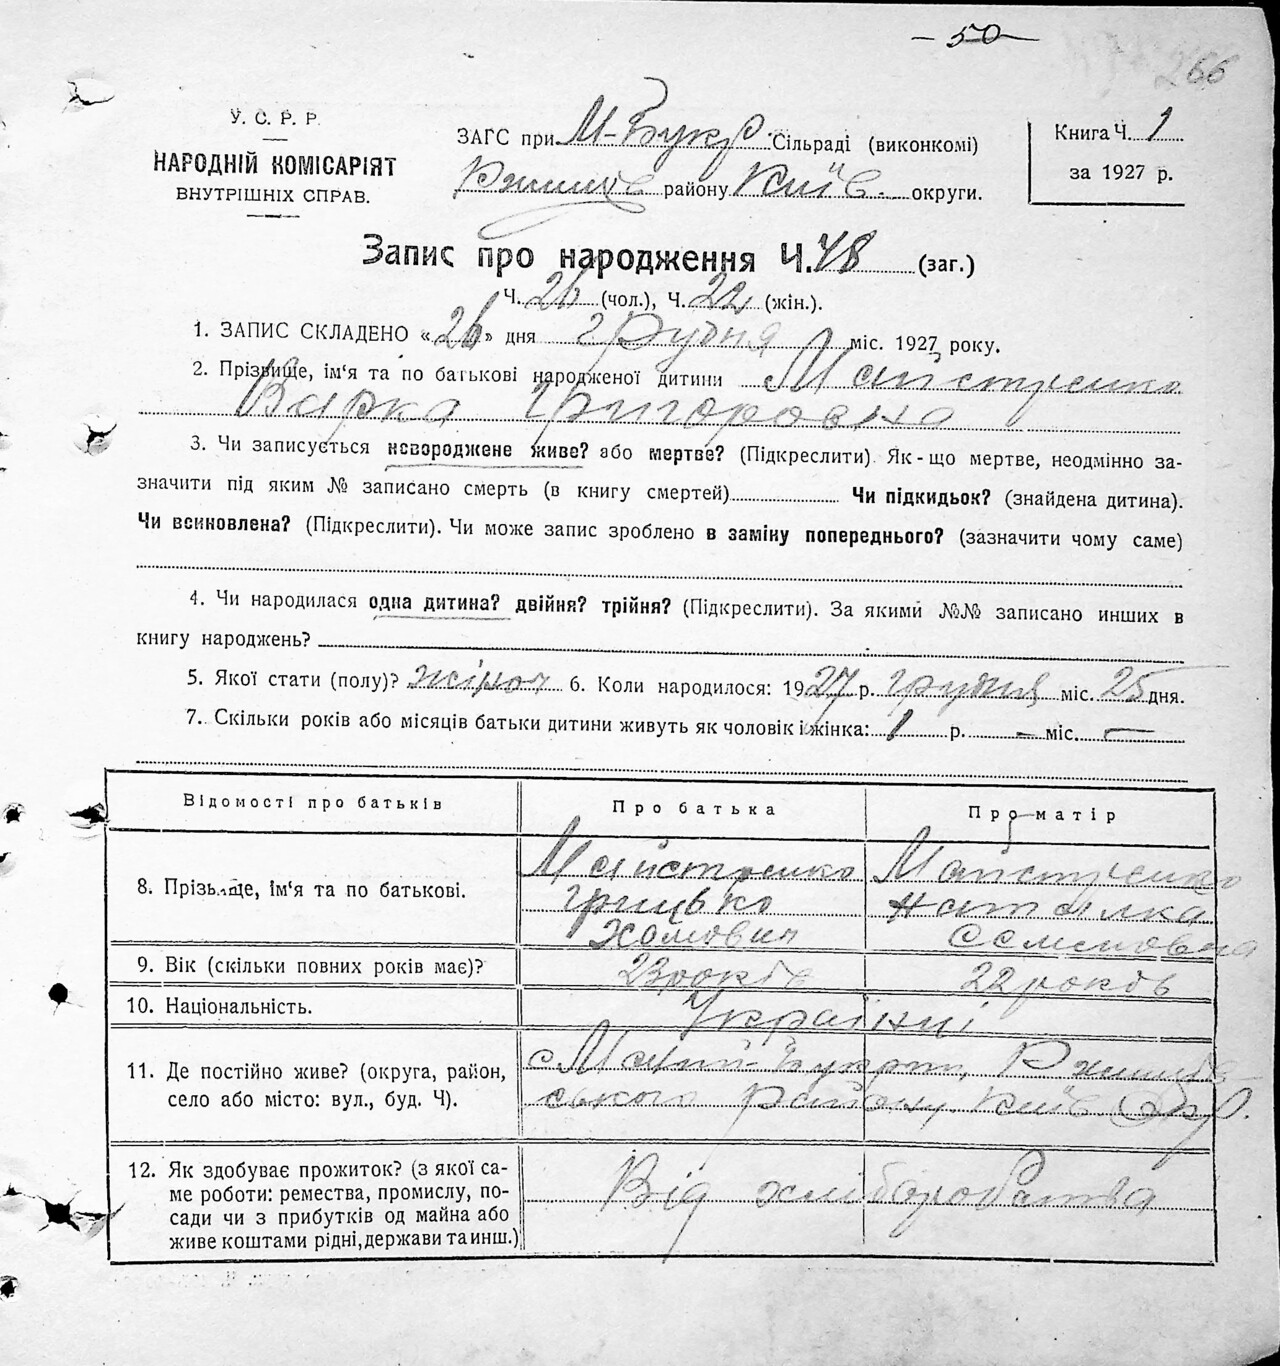 — 50 —
266
У. С. Р. Р.
НАРОДНІЙ КОМІСАРІЯТ
ВНУТРІШНІХ СПРАВ.
ЗАГС при М-Букр. Сільраді (виконкомі)
Ржищів району Київ. округи.
Книга Ч. 1
за 1927 р.
Запис про народження Ч. 48 (заг.)
Ч. 26 (чол.), Ч. 22 (жін.).
1. ЗАПИС СКЛАДЕНО «26» дня грудня міс. 1927 року.
2. Прізвище, ім'я та по батькові народженої дитини Майстренко
Варка Григоровна
3. Чи записується новороджене живе? або мертве? (Підкреслити). Як-що мертве, неодмінно за-
значити під яким № записано смерть (в книгу смертей) Чи підкидьок? (знайдена дитина).
Чи всиновлена? (Підкреслити). Чи може запис зроблено в заміну попереднього? (зазначити чому саме)
4. Чи народилася одна дитина? двійня? трійня? (Підкреслити). За якими №№ записано инших в
книгу народжень?
5. Якої стати (полу)? жіноч 6. Коли народилося: 1927 р. грудня міс. 25 дня.
7. Скільки років або місяців батьки дитини живуть як чоловік і жінка: 1 р. — міс. —
Відомості про батьків Про батька Про матір
8. Прізвище, ім'я та по батькові. Майстренко Майстренко
Грицько Наталка
Хомович Семеновна
9. Вік (скільки повних років має)? 23 років 22 років
10. Національність. Українці
11. Де постійно живе? (округа, район, с Малий-Букрин, Ржищів-
село або місто: вул., буд. Ч). ського району Київ Окр.
12. Як здобуває прожиток? (з якої са-
ме роботи: ремества, промислу, по- Від хліборобства
сади чи з прибутків од майна або
живе коштами рідні, держави та инш.)